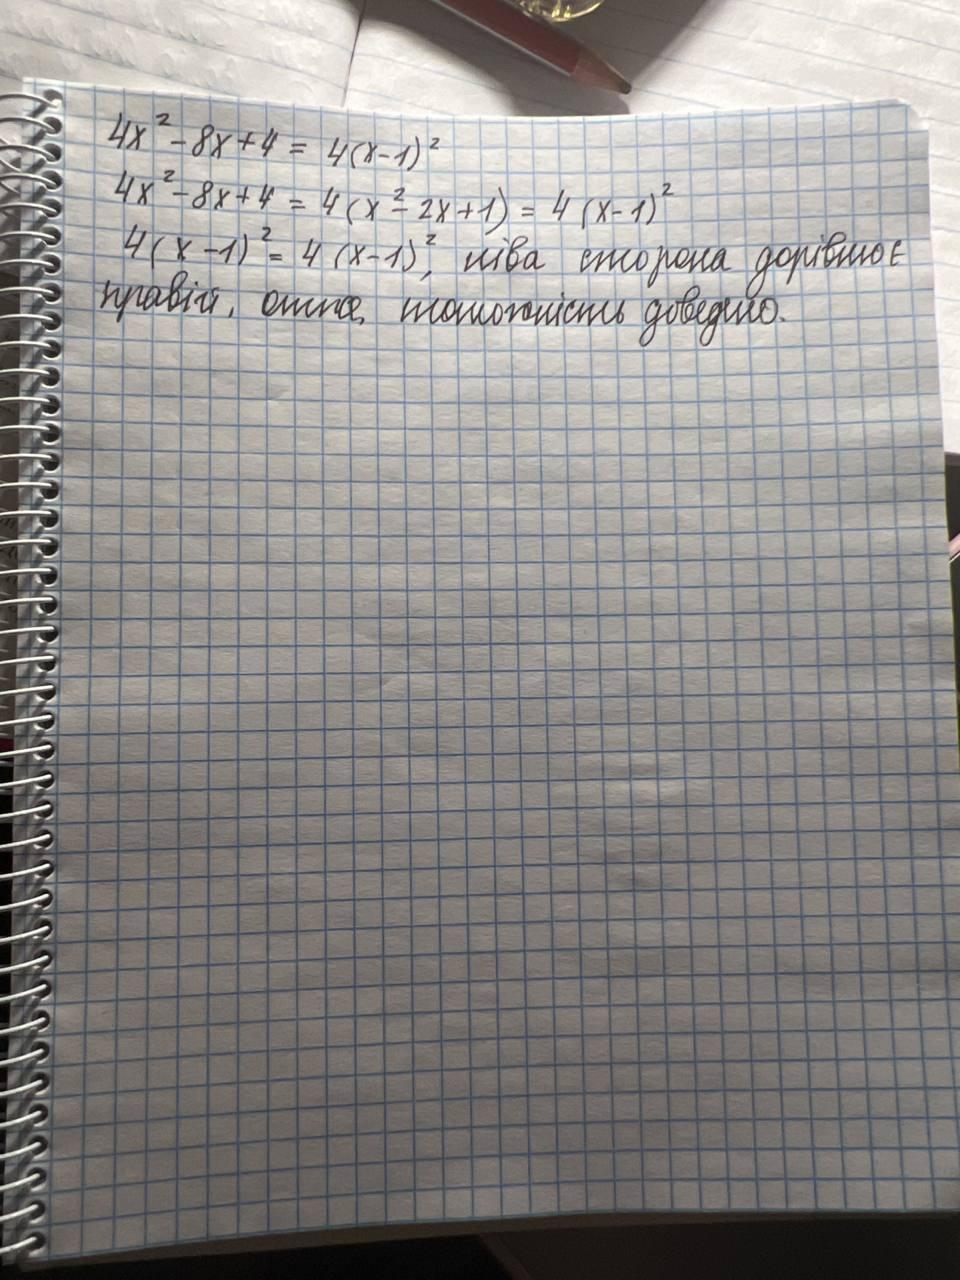 4x² - 8x + 4 = 4(x - 1)²
4x² - 8x + 4 = 4(x² - 2x + 1) = 4(x - 1)²
4(x - 1)² = 4(x - 1)², ліва сторона дорівнює
правій, отже, тотожність доведено.